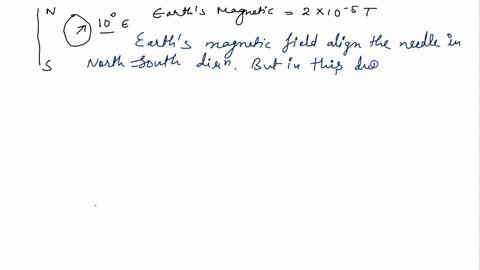 N 10° E Earth's Magnetic = 2 × 10⁻⁵ T
Earth's magnetic field align the needle in
S North-South dirn. But in this